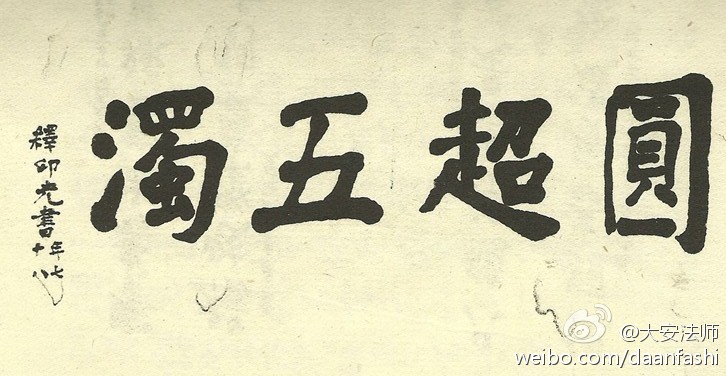 圓超五濁
釋印光書
年七
十八
@大安法师
weibo.com/daanfashi